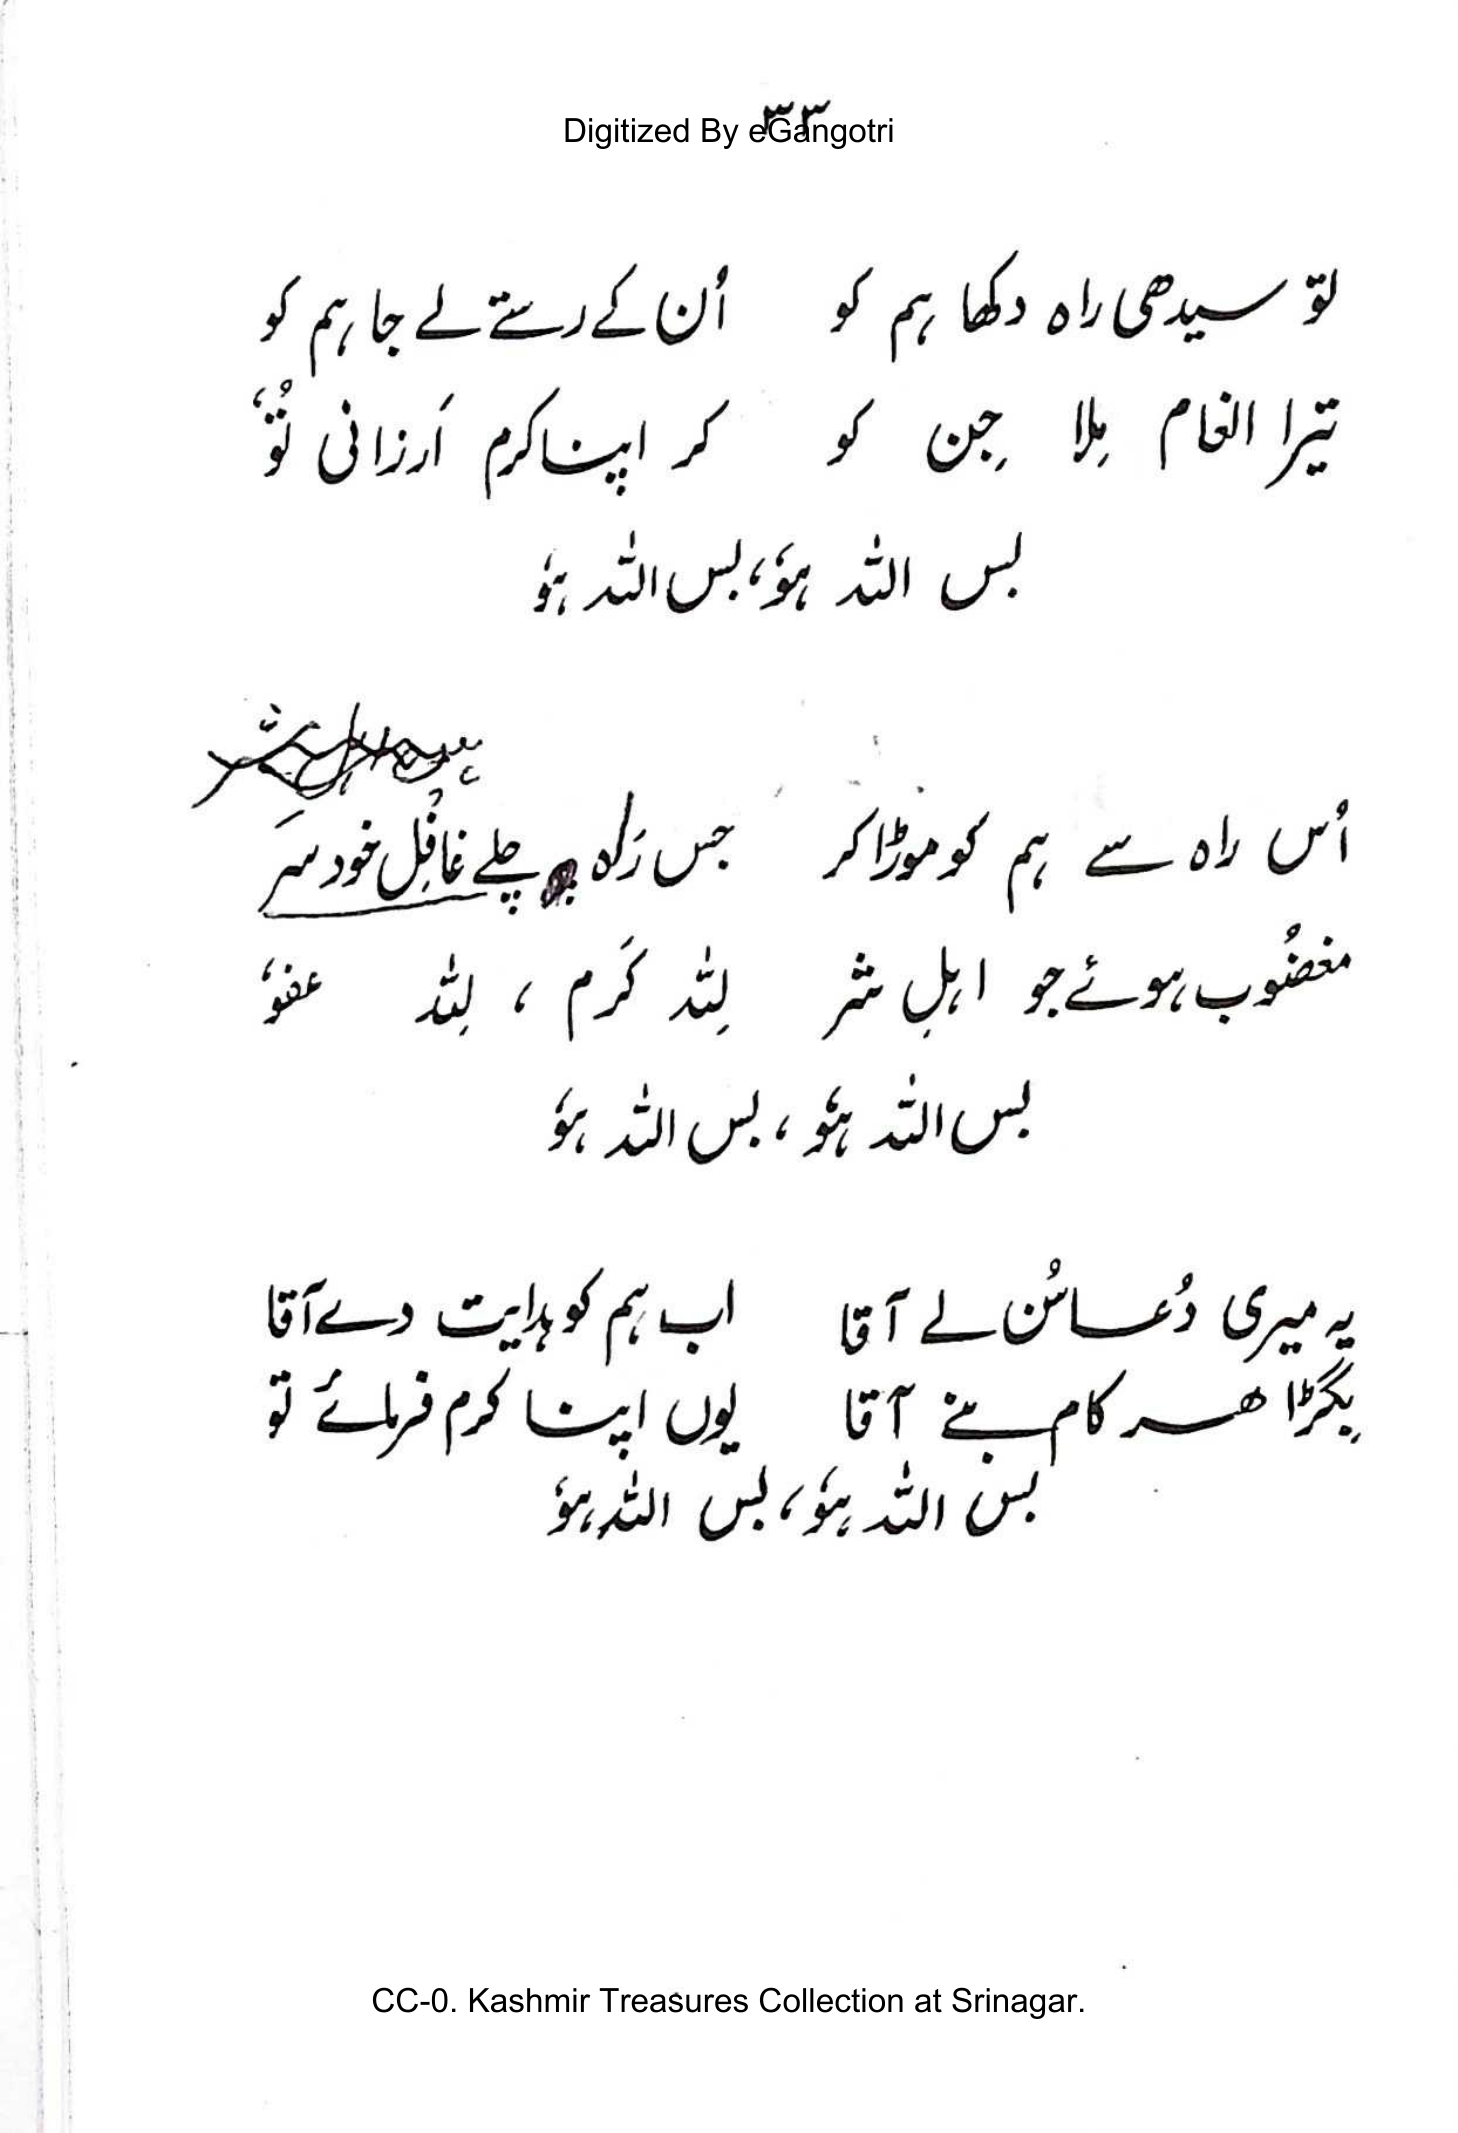 ۳۳
Digitized By eGangotri
تو سیدھی راہ دکھا ہم کو اُن کے رستے لے جا ہم کو
تیرا انعام مِلا جِن کو کر اپنا کرم اَرزانی تُوٗ
بس اللہ ہوٗ، بس اللہ ہوٗ
اُس راہ سے ہم کو موڑا کر جس رَاہ پہ چلے غافُِل خود سَر
مغضُوب ہوئے جو اہلِ شر لِلّٰہ کَرم ، لِلّٰہ عفوٗ
بس اللہ ہوٗ ، بس اللہ ہوٗ
یہ میری دُعا سُن لے آقا اب ہم کو ہدایت دے آقا
بِگڑا ھر کام بنے آقا یوں اپنا کرم فرمائے تو
بس اللہ ہوٗ، بس اللہ ہوٗ
CC-0. Kashmir Treasures Collection at Srinagar.